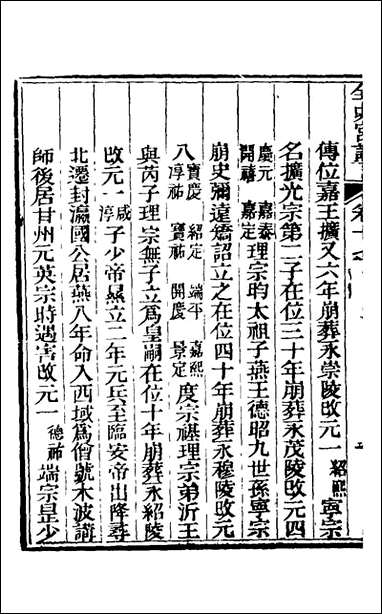 全史宮詞
傳位嘉王擴又六年崩葬永崇陵改元一紹熙寧宗
名擴光宗第二子在位三十年崩葬永茂陵改元四
慶元嘉泰開禧嘉定理宗昀太祖子燕王德昭九世孫寧宗
崩史彌遠矯詔立之在位四十年崩葬永穆陵改元
八寶慶紹定端平嘉熙淳祐寶祐開慶景定度宗禥理宗弟沂王
與芮子理宗無子立爲皇嗣在位十年崩葬永紹陵
改元一咸淳子少帝㬎立二年元兵至臨安帝出降尋
北遷封瀛國公居燕八年命入西域爲僧號木波講
師後居甘州元英宗時遇害改元一德祐端宗昰少